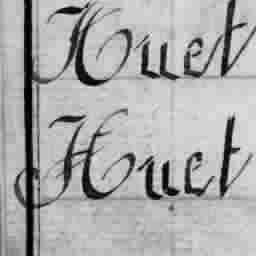 Huet
Huet